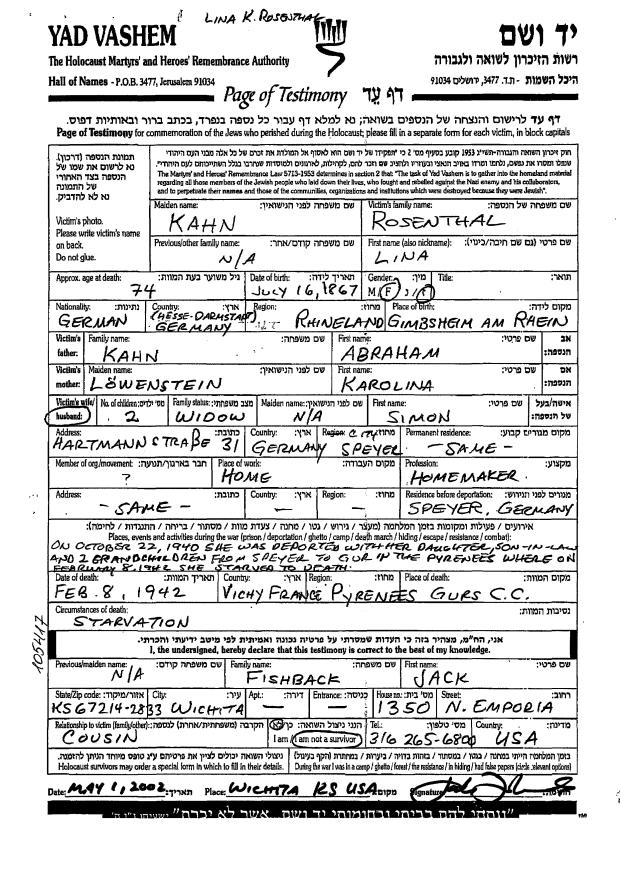 LINA K. ROSENTHAL
YAD VASHEM
יד ושם
The Holocaust Martyrs' and Heroes' Remembrance Authority
רשות הזיכרון לשואה ולגבורה
Hall of Names - P.O.B. 3477, Jerusalem 91034
היכל השמות - ת.ד. 3477, ירושלים 91034
Page of Testimony דף עד
דף עד לרישום והנצחה של הנספים בשואה; נא למלא דף עבור כל נספה בנפרד, בכתב ברור ובאותיות דפוס.
Page of Testimony for commemoration of the Jews who perished during the Holocaust; please fill in a separate form for each victim, in block capitals
תמונת הנספה (דרכון).
נא לרשום את שם
הנספה בצד האחורי
של התמונה
נא לא להדביק.
Victim's photo.
Please write victim's name
on back.
Do not glue.
The Martyrs' and Heroes' Remembrance Law 5713-1953 determines in section 2 that: "The task of Yad Vashem is to gather into the homeland material
regarding all those members of the Jewish people who laid down their lives, who fought and rebelled against the Nazi enemy and his collaborators,
and to perpetuate their names and those of the communities, organizations and institutions which were destroyed because they were Jewish".
Maiden name: שם משפחה לפני הנישואין: Victim's family name: שם משפחה של הנספה:
KAHN ROSENTHAL
Previous/other family name: שם משפחה קודם/אחר: First name (also nickname): שם פרטי (גם שם חיבה/כינוי):
N/A LINA
Approx. age at death: גיל משוער בעת המוות: Date of birth: תאריך לידה: Gender: מין: Title: תואר:
74 JULY 16, 1867 M F
Nationality: נתינות: Country: ארץ: Region: מחוז: Place of birth: מקום לידה:
GERMAN (HESSE-DARMSTADT) GERMANY RHINELAND GIMBSHEIM AM RHEIN
Victim's father: Family name: שם משפחה: First name: שם פרטי: אב הנספה:
KAHN ABRAHAM
Victim's mother: Maiden name: שם לפני הנישואין: First name: שם פרטי: אם הנספה:
LÖWENSTEIN KAROLINA
Victim's wife/ husband: No. of children: מס' ילדים: Family status: מצב משפחתי: Maiden name: שם לפני הנישואין: First name: שם פרטי: אישה/בעל של הנספה:
2 WIDOW N/A SIMON
Address: כתובת: Country: ארץ: Region: CITY מחוז: Permanent residence: מקום מגורים קבוע:
HARTMANNSTRAßE 31 GERMANY SPEYER -SAME-
Member of org./movement: חבר בארגון/תנועה: Place of work: מקום העבודה: Profession: מקצוע:
? HOME HOMEMAKER
Address: כתובת: Country: ארץ: Region: מחוז: Residence before deportation: מגורים לפני הגירוש:
-SAME- — — SPEYER, GERMANY
אירועים / פעולות ומקומות בזמן המלחמה (מעצר / גירוש / גטו / מחנה / צעדת מוות / מסתור / בריחה / התנגדות / לחימה):
Places, events and activities during the war (prison / deportation / ghetto / camp / death march / hiding / escape / resistance / combat):
ON OCTOBER 22, 1940 SHE WAS DEPORTED WITH HER DAUGHTER, SON-IN-LAW
AND 2 GRANDCHILDREN FROM SPEYER TO GURS IN THE PYRENEES WHERE ON
FEBRUARY 8, 1942 SHE STARVED TO DEATH.
Date of death: תאריך המוות: Country: ארץ: Region: מחוז: Place of death: מקום המוות:
FEB. 8, 1942 VICHY FRANCE PYRENEES GURS C.C.
Circumstances of death: נסיבות המוות:
STARVATION
105417
אני, הח"מ, מצהיר בזה כי העדות שמסרתי על פרטיה נכונה ואמיתית לפי מיטב ידיעתי והכרתי.
I, the undersigned, hereby declare that this testimony is correct to the best of my knowledge.
Previous/maiden name: שם משפחה קודם: Family name: שם משפחה: First name: שם פרטי:
N/A FISHBACK JACK
State/Zip code: אזור/מיקוד: City: עיר: Apt.: דירה: Entrance: כניסה: House no.: מס' בית: Street: רחוב:
KS 67214-2833 WICHITA — — 1350 N. EMPORIA
Relationship to victim (family/other): הקרבה (משפחתית/אחרת) לנספה: I am / I am not a survivor הנני ניצול השואה: Tel.: מס' טלפון: Country: מדינה:
COUSIN 316 265-6800 USA
ניצולי השואה יכולים לציין את פרטיהם ע"ג טופס מיוחד הניתן להזמנה.
Holocaust survivors may order a special form in which to fill in their details.
During the war I was in a camp / ghetto / forest / the resistance / in hiding / had false papers (circle relevant options)
Date: MAY 1, 2002 תאריך: Place: WICHITA KS USA מקום: Signature: חתימה:
"ונתתי להם בביתי ובחומותי יד ושם... אשר לא יכרת"